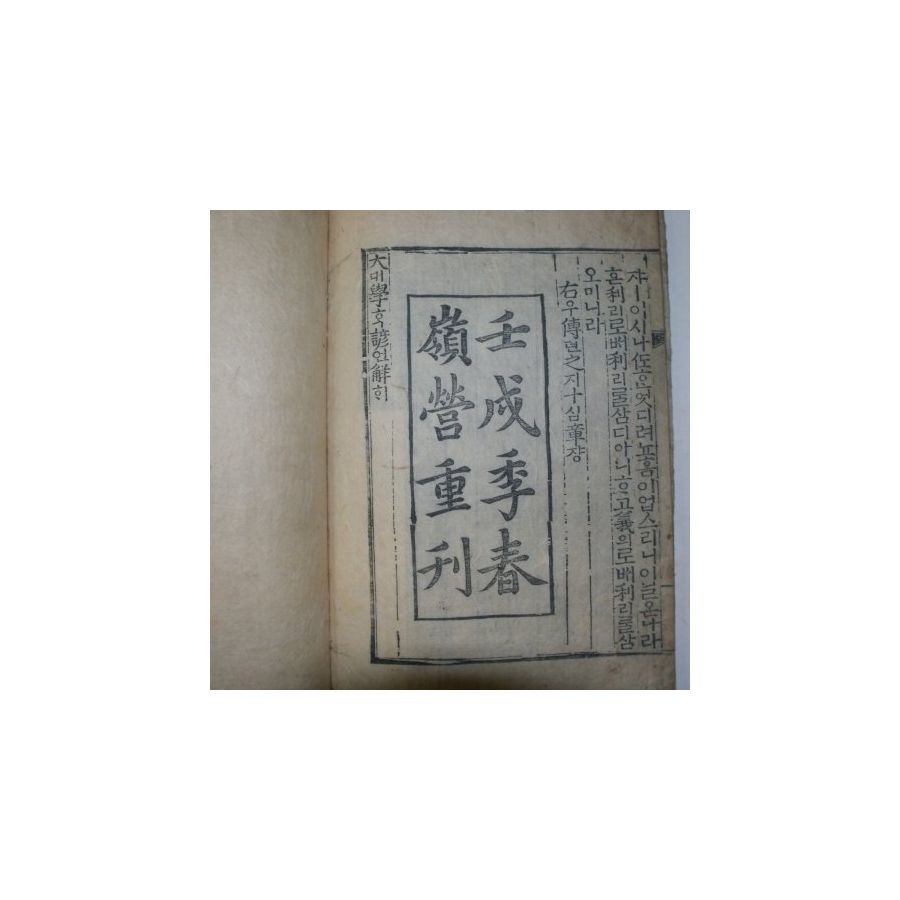 쟈ㅣ이시나ᄯᅩᄒᆞᆫ엇디려뇨홈이업스리니이닐온나라
ᄒᆞᆫ利리로ᄡᅥ利리ᄅᆞᆯ삼디아니ᄒᆞ고義의로ᄡᅥ利리ᄅᆞᆯ삼
오미니라
右우傳뎐之지十십章쟝
壬戌季春
嶺營重刊
大대學ᄒᆞᆨ諺언解ᄒᆡ